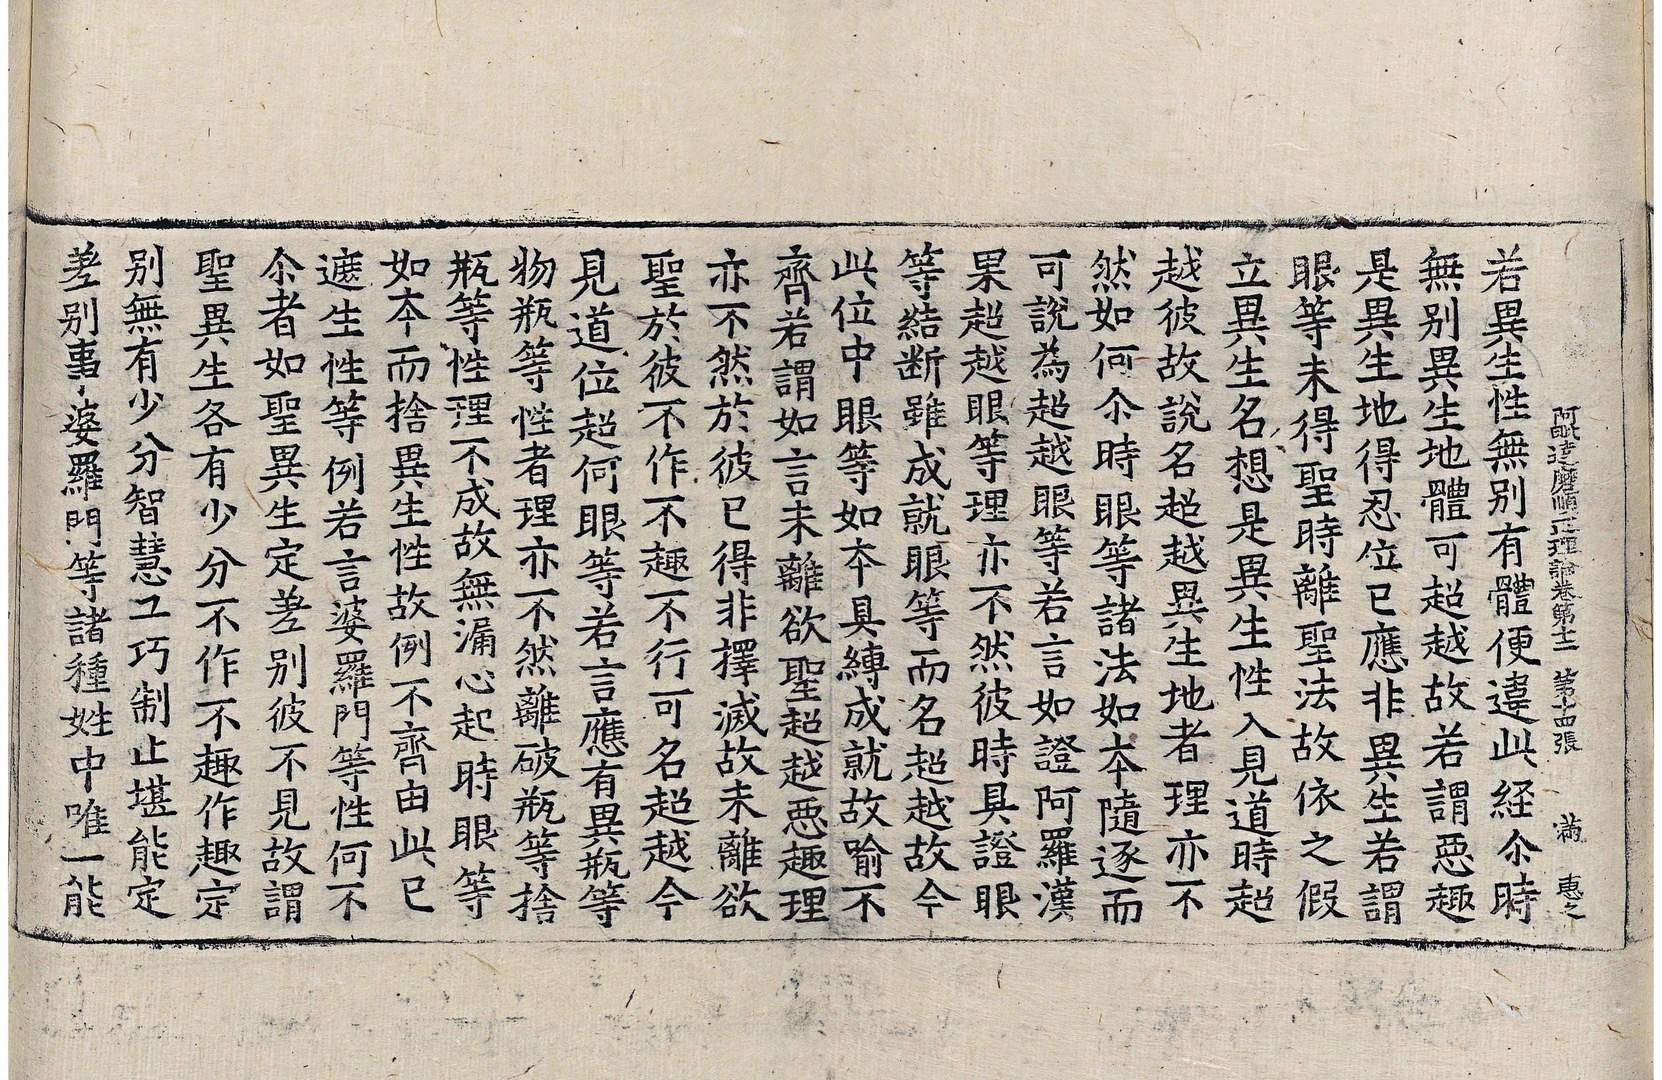 阿毗達磨順正理論卷第十二 第十四張 滿 惠之
若異生性無別有體便違此經尒時
無別異生地體可超越故若謂惡趣
是異生地得忍位已應非異生若謂
眼等未得聖時離聖法故依之假
立異生名想是異生性入見道時超
越彼故說名超越異生地者理亦不
然如何尒時眼等諸法如夲隨逐而
可說為超越眼等若言如證阿羅漢
果超越眼等理亦不然彼時具證眼
等結断雖成就眼等而名超越故今
此位中眼等如夲具縛成就故喻不
齊若謂如言未離欲聖超越惡趣理
亦不然於彼已得非擇滅故未離欲
聖於彼不作不趣不行可名超越今
見道位超何眼等若言應有異瓶等
物瓶等性者理亦不然離破瓶等捨
瓶等性理不成故無漏心起時眼等
如夲而捨異生性故例不齊由此已
遮生性等例若言婆羅門等性何不
尒者如聖異生定差別彼不見故謂
聖異生各有少分不作不趣作趣定
別無有少分智慧工巧制止堪能定
差別事婆羅門等諸種姓中唯一能